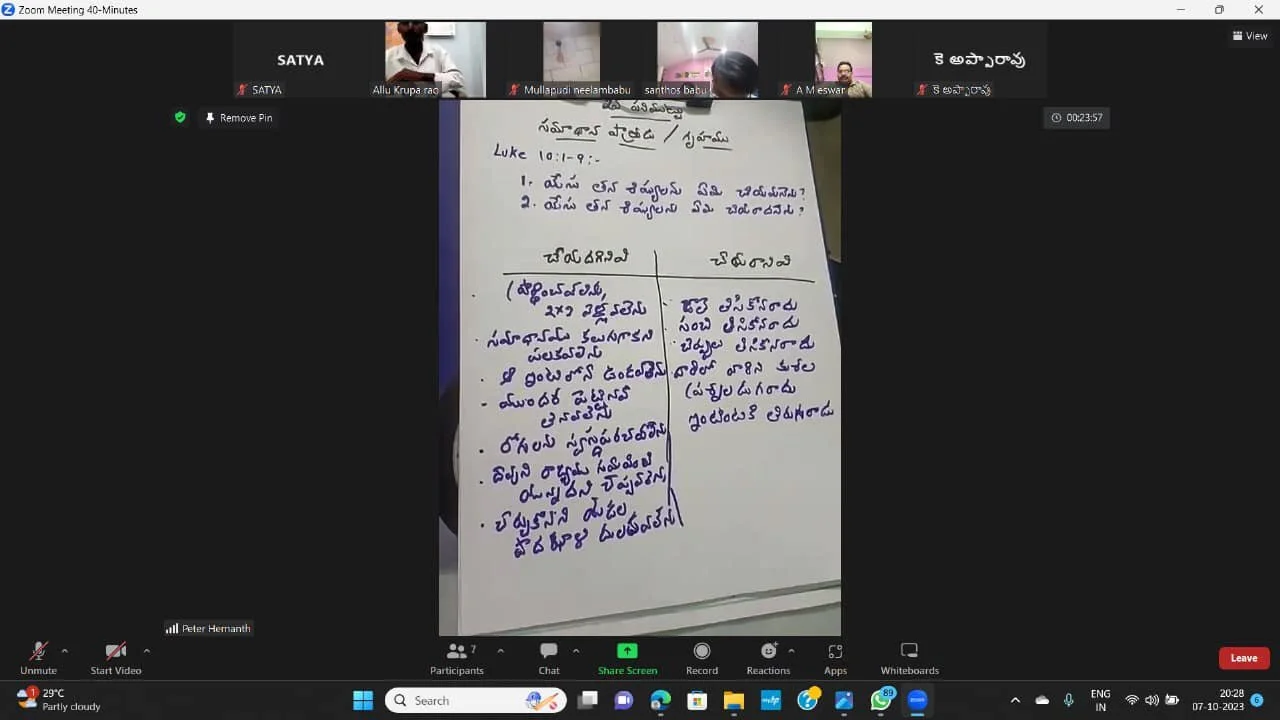 Zoom Meeting 40-Minutes
View
SATYA
కె అప్పారావు
SATYA
Allu Krupa rao
Mullapudi neelambabu
santhos babu
A M eswar
కె అప్పారావు
Remove Pin
00:23:57
సమాధాన పాత్రుడు / గృహము
Luke 10:1-9:-
1. యేసు తన శిష్యులను ఏమి చేయమనెను?
2. యేసు తన శిష్యులను ఏమి చేయరాదనెను?
చేయదగినవి
చేయరానివి
ప్రార్థించవలెను,
2x2 వెళ్లవలెను
సమాధానము కలుగుగాకని
పలకవలెను
ఆ ఇంటిలోనే ఉండవలెను
ముందర పెట్టినవి
తినవలెను
రోగులను స్వస్థపరచవలెను
దేవుని రాజ్యము సమీపించి
యున్నదని చెప్పవలెను
చేర్చుకొనని యెడల
పాద ధూళి దులపవలెను
జాలె తీసికోనరాదు
సంచి తీసికోనరాదు
చెప్పులు తీసికోనరాదు
దారిలో వారిని కుశల
ప్రశ్నలడుగరాదు
ఇంటింటికి తిరుగరాదు
Peter Hemanth
Unmute
Start Video
Participants
7
Chat
Share Screen
Record
Reactions
Apps
Whiteboards
Leave
1
29°C
Partly cloudy
Search
89
zoom
ENG
IN
20:28
07-10-2023
6